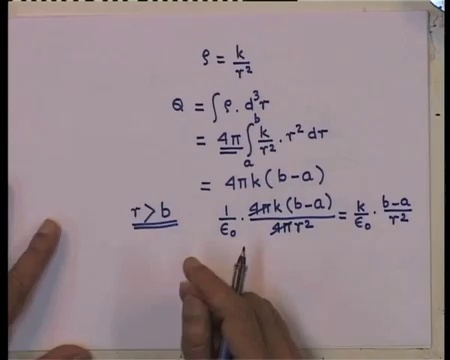 ρ = k/r²
Q = ∫ ρ. d³r
= 4π ∫ₐᵇ k/r² · r² dr
= 4πk (b-a)
r > b 1/ε₀ · 4πk(b-a)/4πr² = k/ε₀ · b-a/r²